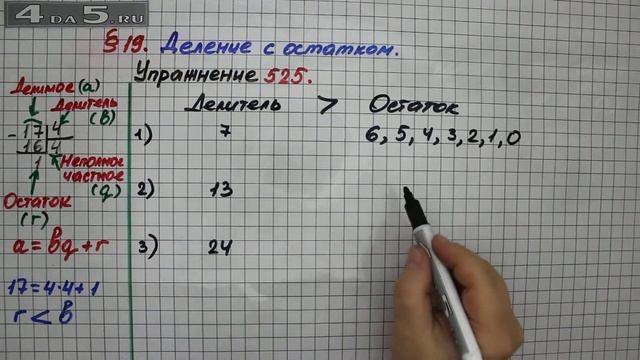 4DA5.RU
§ 19. Деление с остатком.
Упражнение 525.
Делимое (a)
Делитель (b)
- 17 | 4
16 | 4
1
Неполное частное (q)
Остаток (r)
a = bq + r
17 = 4·4 + 1
r < b
Делитель > Остаток
1) 7 6, 5, 4, 3, 2, 1, 0
2) 13
3) 24